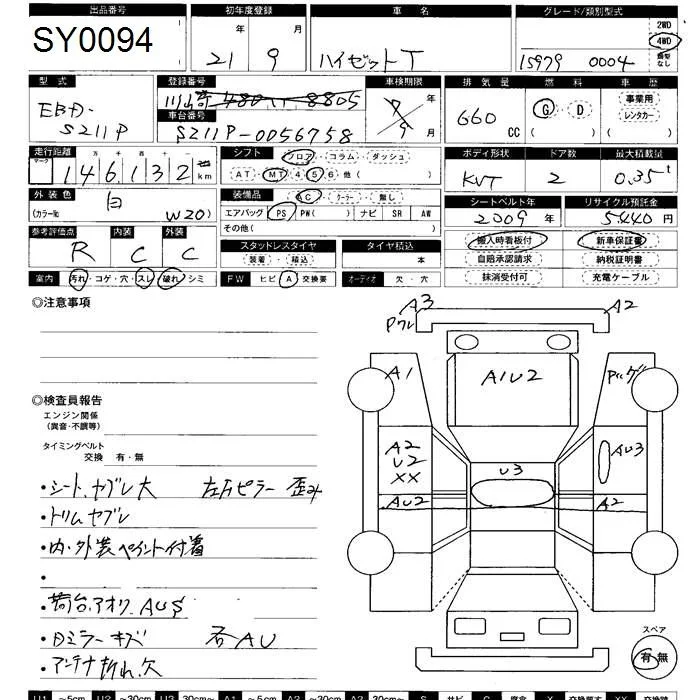 出品番号 初年度登録 車 名 グレード/類別型式
SY0094 21 年 9 月 ハイゼットT 15979 0004 2WD 4WD 類型なし
型 式 登録番号 車検期限 排 気 量 燃 料 車 歴
EBD-S211P 480 8805 年 9 月 660 CC G・D ( ) 事業用 レンタカー ( )
車台番号
S211P-0056758
走行距離 シフト フロア・コラム・ダッシュ ボディ形状 ドア数 最大積載量
マーク 十万 万 千 百 十 一
146132 km AT・MT 4 5 6 他 ( ) KVT 2 0.35t
外 装 色 白 装備品 AC・クーラー・無し シートベルト年 リサイクル預託金
(カラーNo W20) エアバッグ PS PW( ) ナビ SR AW 2009 年 5440 円
その他 ( )
参考評価点 内装 外装 スタッドレスタイヤ タイヤ積込 搬入時看板付 新車保証書
R C C 装着・積込 本 自賠承認請求 納税証明書
室内 汚れ・コゲ・穴・スレ・破れ・シミ FW ヒビ A 交換要 オーディオ 欠・穴 抹消受付可 充電ケーブル
◎注意事項
◎検査員報告
エンジン関係
(異音・不調等)
タイミングベルト
交換 有・無
・シート、ヤブレ大 左右ピラー歪み
・トリムヤブレ
・内・外装ペイント付着
・
・荷台、アオリ、AUS
・Dミラーキズ 各AU
・アンテナ折れ、欠
A3 A2
Pワレ
A1 A1U2
A2
U2
XX
U3 AU3
AU2 A2
スペア
有・無
U1 ～5cm U2 ～30cm U3 30cm～ A1 ～5cm A2 ～30cm A3 30cm～ S サビ C 腐食 X 交換要す XX 交換跡